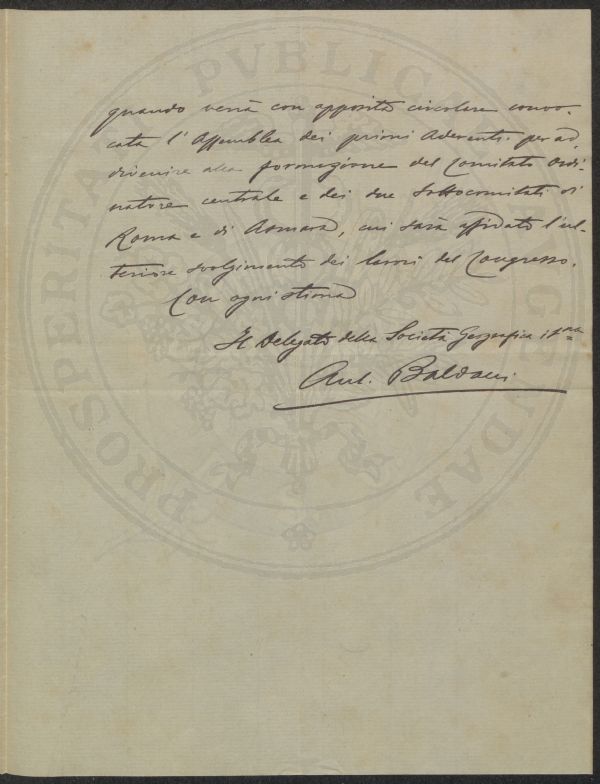 quando verrà con apposita circolare convo-
cata l'Assemblea dei primi Aderenti per ad
divenire alla formazione del Comitato Ordi-
natore centrale e dei due Sottocomitati di
Roma e di Asmara, cui sarà affidato l'ul-
teriore svolgimento dei lavori del Congresso.
Con ogni stima
Il Delegato della Società Geografica It.na
Ant. Baldacci
PROSPERITATI PVBLICAE AVGENDAE